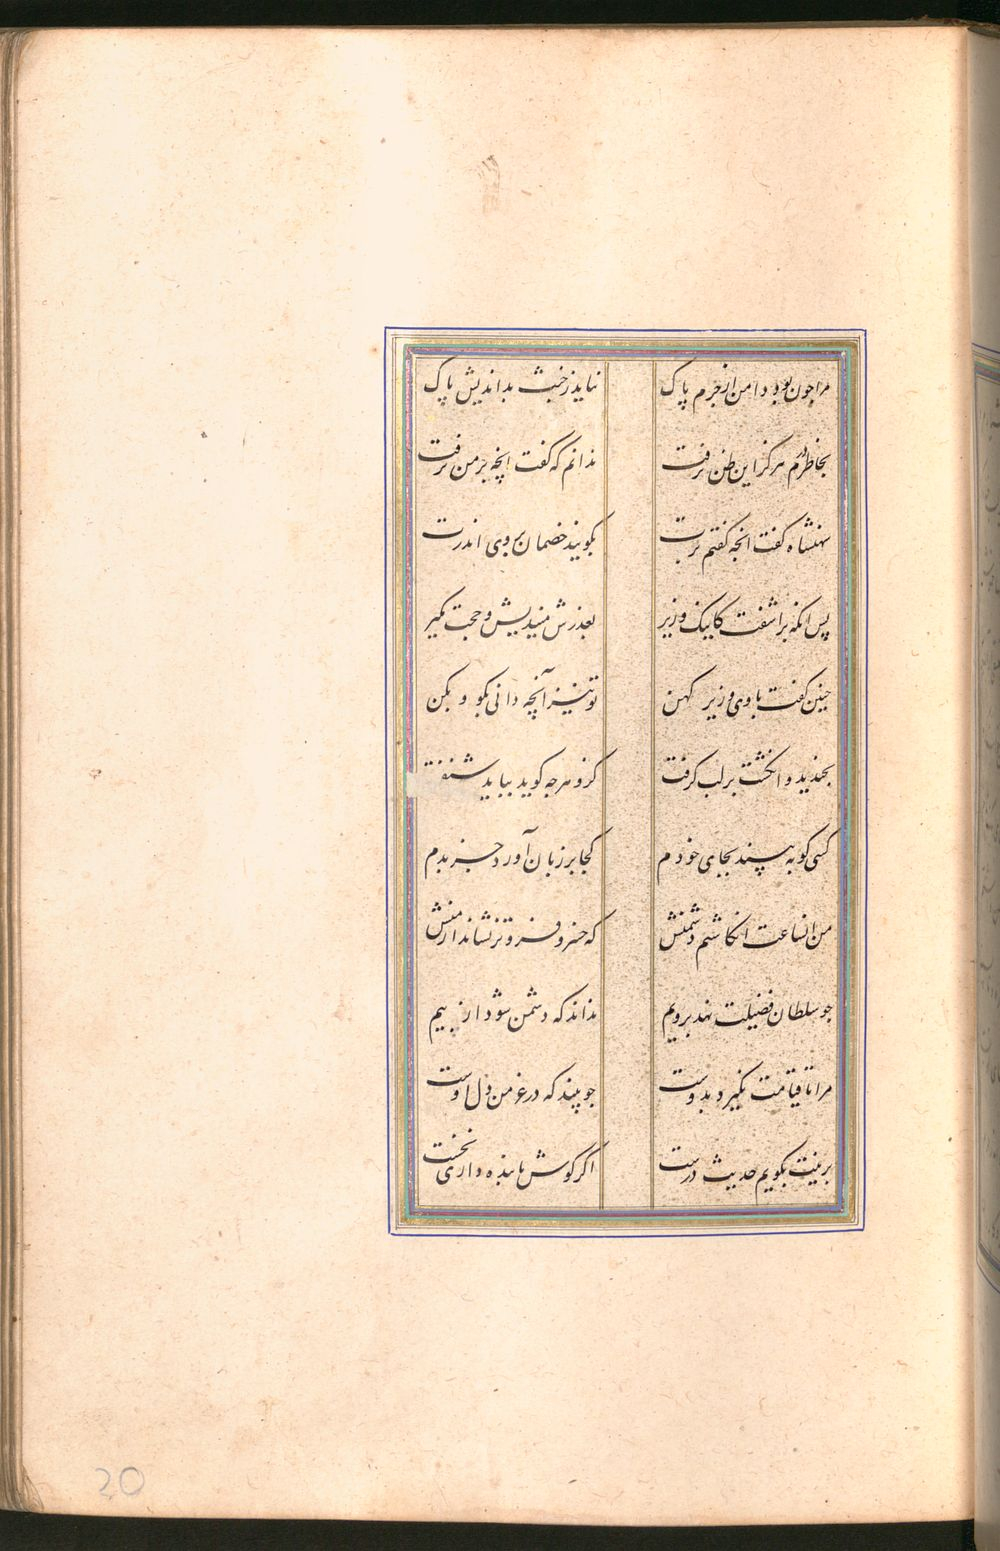 مرا چون بود دامن از جرم پاک نیاید ز خبث بداندیش باک
بخاطر درم هرگز این ظن نرفت ندانم که گفت انچه بر من نرفت
شهنشاه گفت انچه گفتم برت بگویند خصمان بروی اندرت
پس انگه براشفت کاینک وزیر بعذرش میندیش و حجت مگیر
چنین گفت با وی وزیر کهن تو نیز آنچه دانی بگو و بکن
بخندید و انگشت بر لب گرفت کزو هرچه گوید نیاید شگفت
کسی کو به بیند بجای خودم کجا بر زبان آورد جز بدم
من انساعت انگاشتم دشمنش که خسرو فروتر نشاند از منش
چو سلطان فضیلت نهد برویم نداند که دشمن شود از پیم
مرا تا قیامت نگیرد بدوست چو بیند که در غم من دل اوست
برینت بگویم حدیث درست اگر گوش با بنده داری نخست
20